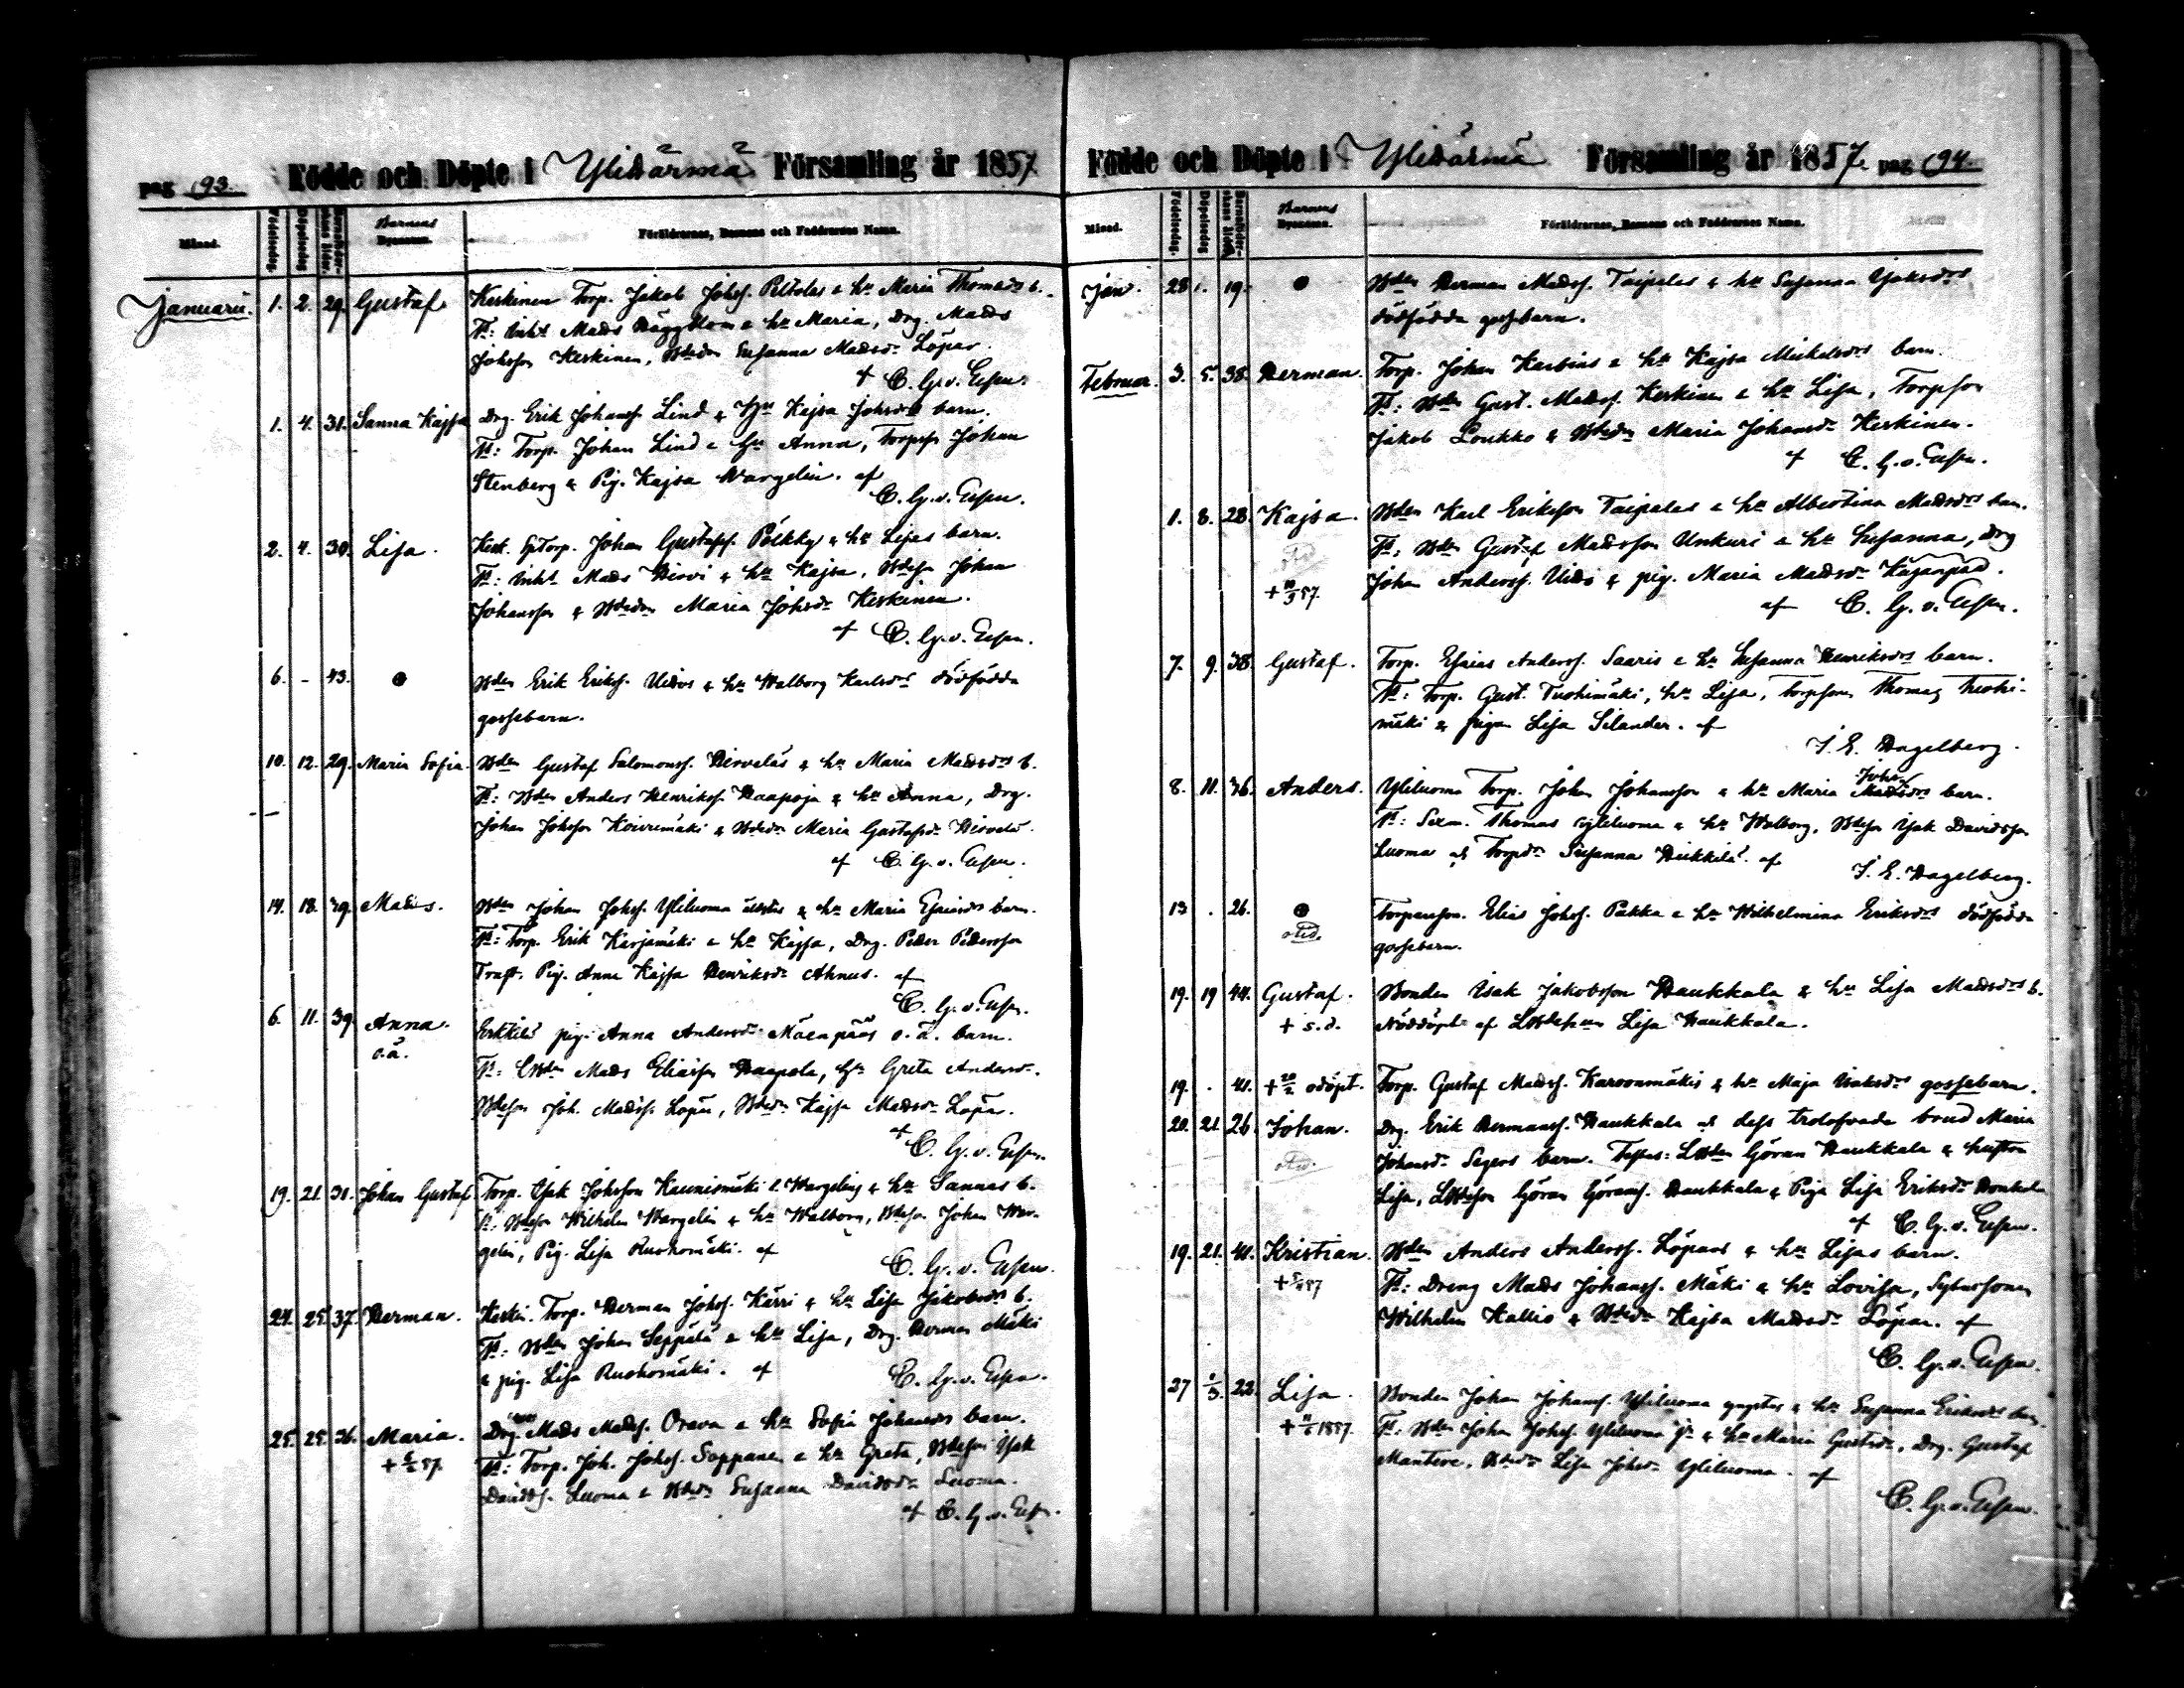 pag 93. Födde och Döpte i Ylihärmä Församling år 1857
Månad. Födelsedag. Döpelsedag Barnaföderskans ålder. Barnens Byanamn. Föräldrarnes, Barnens och Faddrarnes Namn.
Januarii. 1. 2. 29. Gustaf Keskinen Torp. Jakob Johss. Peltolas & hu Maria Thomasds b.
Ts: Inhs Mads Häggblom & hu Maria, Drg. Mads
Johsson Keskinen, Bdedr Susanna Madsdr Löpar.
af C. G. v. Essen.
1. 4. 31. Sanna Kajsa Drg. Erik Johanss. Lind & Hu Kajsa Johsds barn.
Ts: Torp. Johan Lind & hu Anna, Torpss Johan
Stenberg & Pig. Kajsa Wargelin. af
C. G. v. Essen.
2. 4. 30. Lisa. Kesk. Torp. Johan Gustafss. Pölkky & hu Lisas barn.
Ts: Inhs Mads Hirvi & hu Kajsa, Bdess Johan
Johansson & Bdedr Maria Johsdr Keskinen.
af C. G. v. Essen.
6. - 43. Bden Erik Erikss. Uitos & hu Walborg Karlsds dödfödda
gossebarn.
10. 12. 29. Maria Sofia. Bden Gustaf Salomonss. Hirveläs & hu Maria Madsds b.
Ts: Bden Anders Henrikss. Haapoja & hu Anna, Drg.
Johan Johsson Koivumäki & Bdedr Maria Gustafsdr Hirvelä.
af C. G. v. Essen.
14. 18. 39. Mads. Bden Johan Johss. Yliluoma äldstes & hu Maria Esaiasds barn.
Ts: Torp. Erik Karjamäki & hu Kajsa, Drg. Peder Pedersson
Trast, Pig. Anna Kajsa Henriksdr Ahnus. af
C. G. v. Essen.
6. 11. 39. Anna. Erkkilä pig. Anna Andersdr Mäenpääs o.ä. barn.
o.ä. Ts: Bden Mads Eliasson Haapala, hu Greta Andersdr.
Bdesson Joh. Madss. Löpar, Bdedr Kajsa Madsdr Löpar.
af C. G. v. Essen.
19. 21. 31. Johan Gustaf. Torp. Isak Johsson Kaunismäki l. Wargelins & hu Sannas b.
Ts. Bdess Wilhelm Wargelin & hu Walborg, Bdess. Johan War-
gelin, Pig. Lisa Ruohomäki. af
C. G. v. Essen.
24. 25. 37. Herman. Keski. Torp. Herman Johss. Kärri & hu Lisa Jakobsds b.
Ts: Bden Johan Seppälä & hu Lisa, Drg. Herman Mäki
& pig. Lisa Ruohomäki. af C. G. v. Essen.
25. 25. 36. Maria. Drg. Mads Madss. Orava & hu Sofia Johansds barn.
Ts: Torp. Joh. Johss. Soppanen & hu Greta, Bdesson Isak
Davidss. Luoma & Bdedr Susanna Davidsdr Luoma.
af C. G. v. Essen.
Födde och Döpte i Ylihärmä Församling år 1857. pag 94.
Månad. Födelsedag. Döpelsedag Barnaföderskans ålder. Barnens Byanamn. Föräldrarnes, Barnens och Faddrarnes Namn.
Jan. 28. 19. Bden Herman Madss. Taipalas & hu Susanna Isaksds
dödfödda gossebarn.
Februar. 3. 5. 38. Herman. Torp. Johan Karbins & hu Kajsa Mickelsds barn.
Ts: Bden Gust. Madss. Keskinen & hu Lisa, Torpson
Jakob Loukko & Bdedr Maria Johansdr Keskinen.
af C. G. v. Essen.
1. 8. 28. Kajsa. Bden Karl Eriksson Taipalas & hu Albertina Madsds barn.
Ts: Bden Gustaf Madsson Unkuri & hu Susanna, Drg
Johan Anderss. Uito & pig. Maria Madsdr Kuganpää.
af C. G. v. Essen.
7. 9. 38. Gustaf. Torp. Esaias Anderss. Saaris & hu Susanna Henriksds barn.
Ts: Torp. Gust. Tuohimäki, hu Lisa, Torpson Thomas Tuohi-
mäki & pigan Lisa Silander. af
J. E. Hagelberg.
8. 11. 36. Anders. Yliluoma Torp. Johan Johansson & hu Maria Johs barn.
Ts: Sexm. Thomas Yliluoma & hu Walborg, Bdess Isak Davidsson
Luoma och Torpdr Susanna Heikkilä. af
J. E. Hagelberg.
13 . 26. Torpareson. Elias Johss. Pukka & hu Wilhelmina Eriksds dödfödda
gossebarn.
19. 19 44. Gustaf. Bonden Isak Jakobsson Haukkala & hu Lisa Madsds b.
+ s. d. Nöddöpt af Lisa Haukkala.
19. . 41. + 20/2 odöpt. Torp. Gustaf Madss. Karvonmäkis & hu Maja Isaksds gossebarn.
20. 21. 26. Johan. Drg. Erik Hermanss. Haukkala och dess trolofvade brud Maria
Johansdr Segers barn. Testes: Göran Haukkala & hustru
Lisa, Göran Göranss. Haukkala & Piga Lisa Eriksdr
af C. G. v. Essen.
19. 21. 41. Kristian. Bden Anders Anderss. Löpars & hu Lisas barn.
Ts: Dreng Mads Johanss. Mäki & hu Lovisa, Sytnssonen
Wilhelm Kallio & Bdedr Kajsa Madsdr Löpar. af
C. G. v. Essen.
27 1/3. 22. Lisa. Bonden Johan Johanss. Yliluoma yngstes & hu Susanna Eriksds barn.
Ts: Bden Johan Johss. Yliluoma & hu Maria Gustsdr, Drg. Gustaf
Mantere, Bdedr Lisa Johsdr Yliluoma. af
C. G. v. Essen.